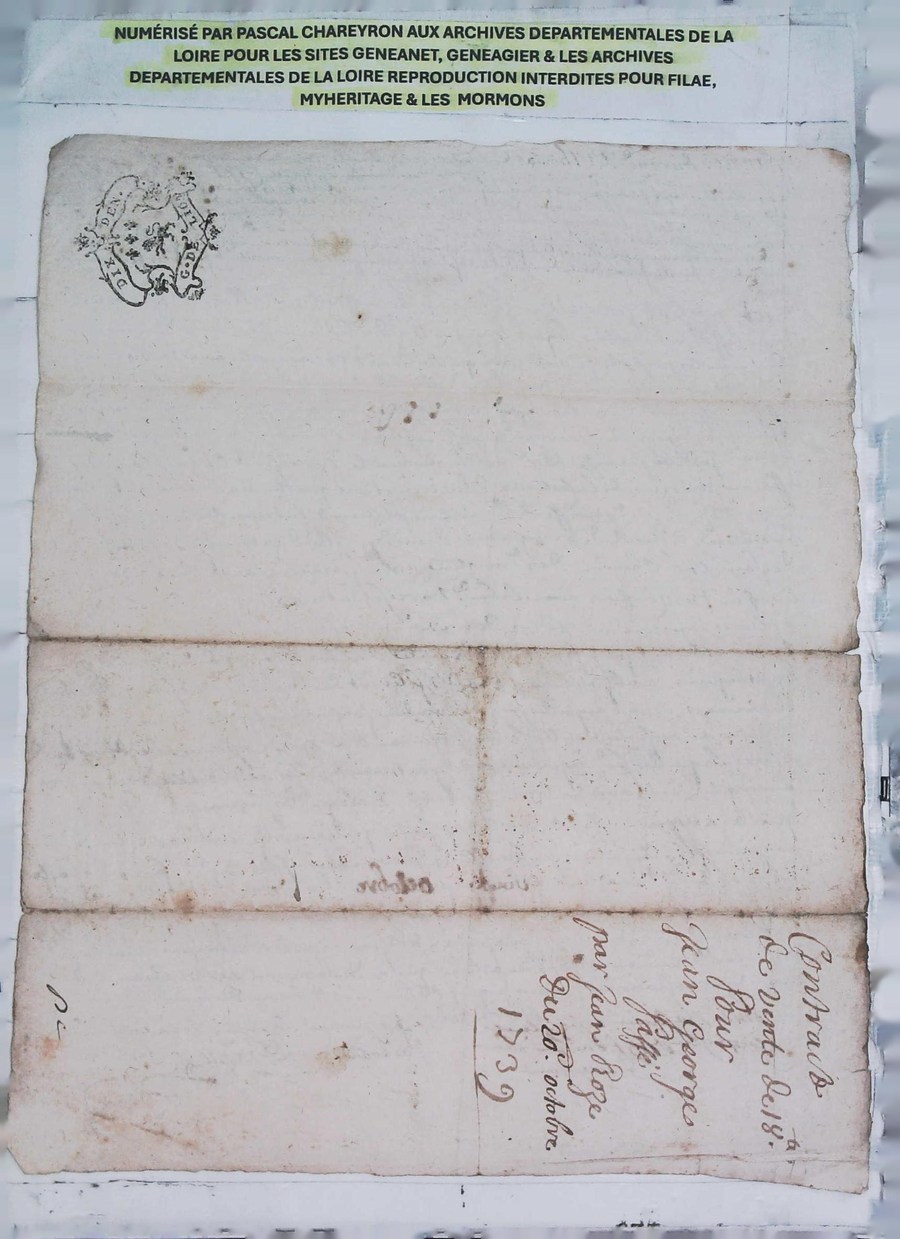 NUMÉRISÉ PAR PASCAL CHAREYRON AUX ARCHIVES DEPARTEMENTALES DE LA
LOIRE POUR LES SITES GENEANET, GENEAGIER & LES ARCHIVES
DEPARTEMENTALES DE LA LOIRE REPRODUCTION INTERDITES POUR FILAE,
MYHERITAGE & LES MORMONS
DIX DEN.
G. DE
octobre
Contract
de vente de 18.
Pour
Jean George
Passé
par Jean Roze
Du 20. octobre
1739